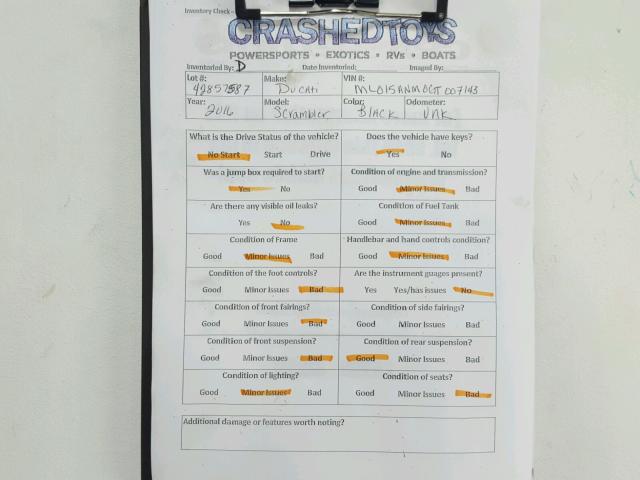 Inventory Check -
CRASHEDTOYS
POWERSPORTS • EXOTICS • RVs • BOATS
Inventoried By: D Date Inventoried: Imaged By:
Lot #: Make: VIN #:
42857587 Ducati ML015ANM0GT007143
Year: Model: Color: Odometer:
2016 Scrambler Black UNK
What is the Drive Status of the vehicle? Does the vehicle have keys?
No Start Start Drive Yes No
Was a jump box required to start? Condition of engine and transmission?
Yes No Good Minor Issues Bad
Are there any visible oil leaks? Condition of Fuel Tank
Yes No Good Minor Issues Bad
Condition of Frame Handlebar and hand controls condition?
Good Minor Issues Bad Good Minor Issues Bad
Condition of the foot controls? Are the instrument guages present?
Good Minor Issues Bad Yes Yes/has issues No
Condition of front fairings? Condition of side fairings?
Good Minor Issues Bad Good Minor Issues Bad
Condition of front suspension? Condition of rear suspension?
Good Minor Issues Bad Good Minor Issues Bad
Condition of lighting? Condition of seats?
Good Minor Issues Bad Good Minor Issues Bad
Additional damage or features worth noting?